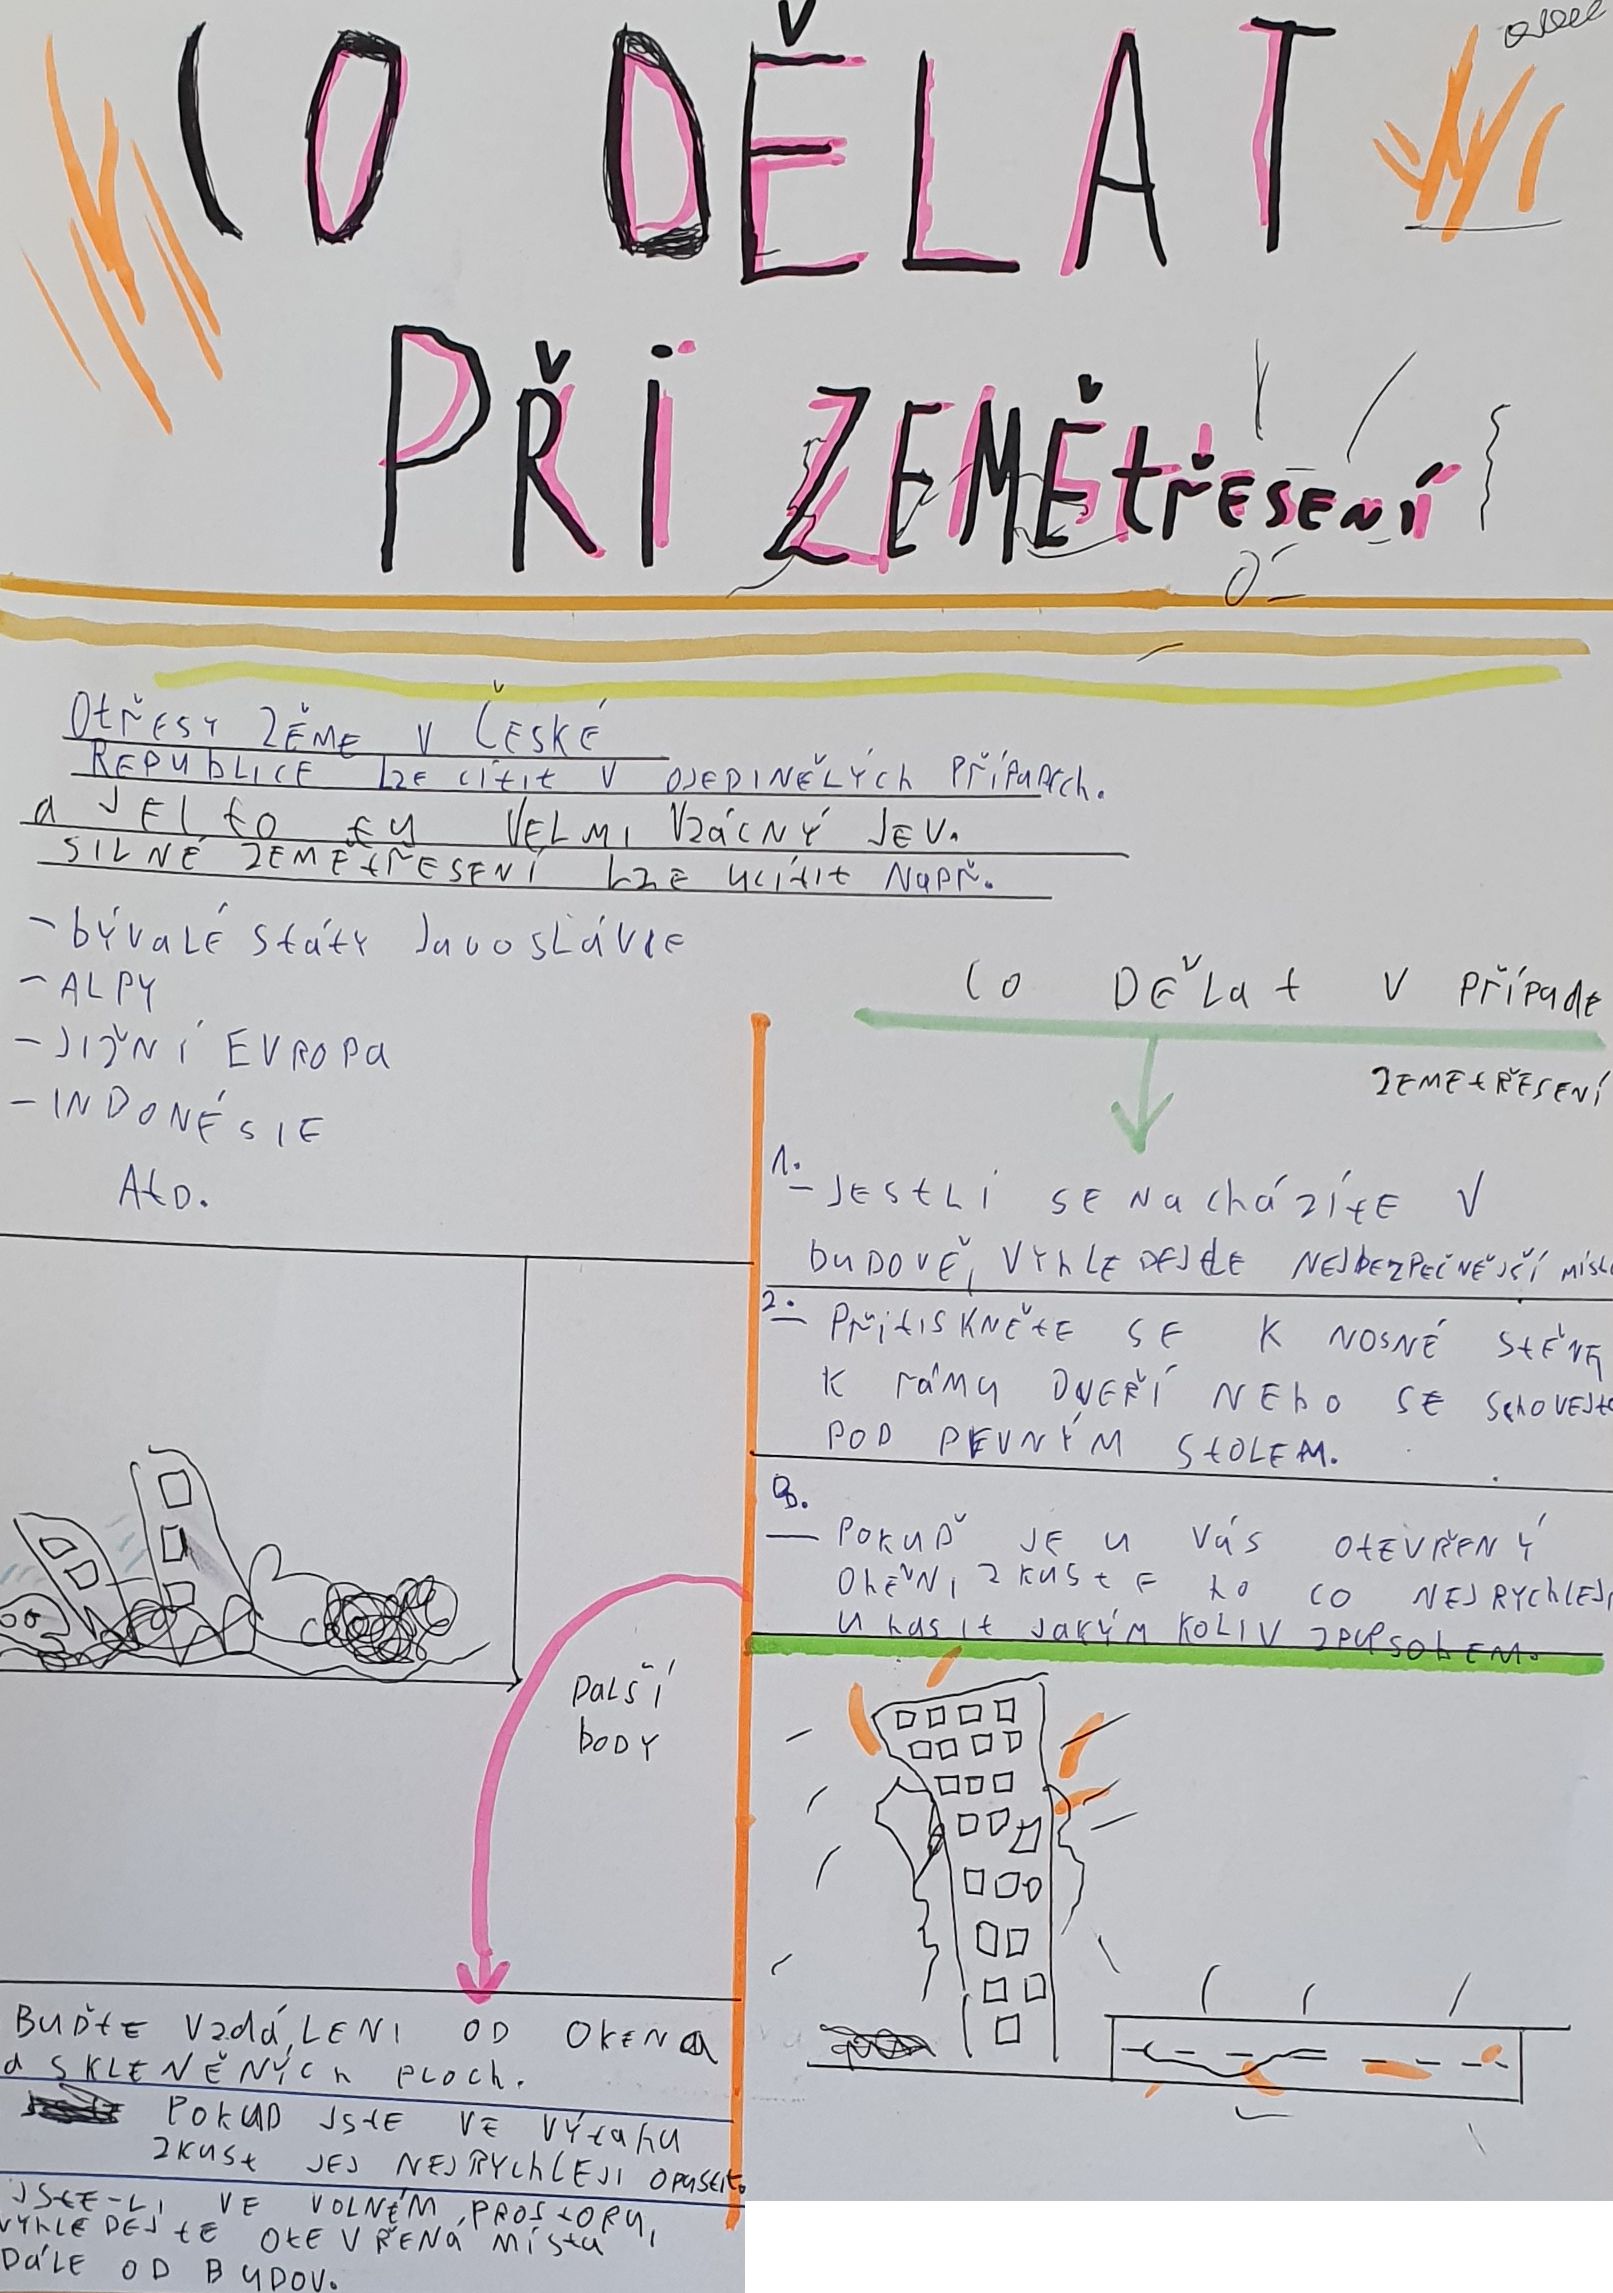 CO DĚLAT
PŘI ZEMĚtŘESENÍ
OtŘESY ZĚME V ČESKÉ
REPUbLICE LZE cítit V OJEDINĚLÝch PŘÍPadEch.
a JEL to tu VELMI VzácNÝ JEV.
SILNÉ ZEMĚtŘESENÍ LZE ucítit NapŘ.
- bÝVaLÉ StátY JuvoSLÁVIE
- ALPY
- JIŽNÍ EVROPa
- INDONÉSIE
AtD.
CO DĚLat V PŘÍPadE
ZEMEtŘESENÍ
1.
- JEStLi SE NacháZítE V
buDOVĚ, VYhLEDEJtE NEJbEZPEČNĚJŠÍ místo
2.
- PŘitiSKNĚtE SE K NOSNÉ StĚNĚ
K rámu DVEŘÍ NEbO SE SchoVEJtE
POD PEVNÝM StOLEM.
3.
- POKUĎ JE u VáS OtEVŘENÝ
OhĚŇ, ZKUStE ho CO NEJRYchLEJi
UhaSit JakÝM KOLIV ZPůSObEM.
DaLŠÍ
bODY
BUĎtE VzdáLENI OD OKEN
a SKLENĚNÝCh PLOch.
POKUD JStE VE VÝtahu
ZKUSt JEJ NEJRYchLEJI OPUStit.
JStE-LI VE VOLNÉM PROStORU,
VYhLEDEJtE OtEVŘENá MíSta
DáLE OD BUDOV.